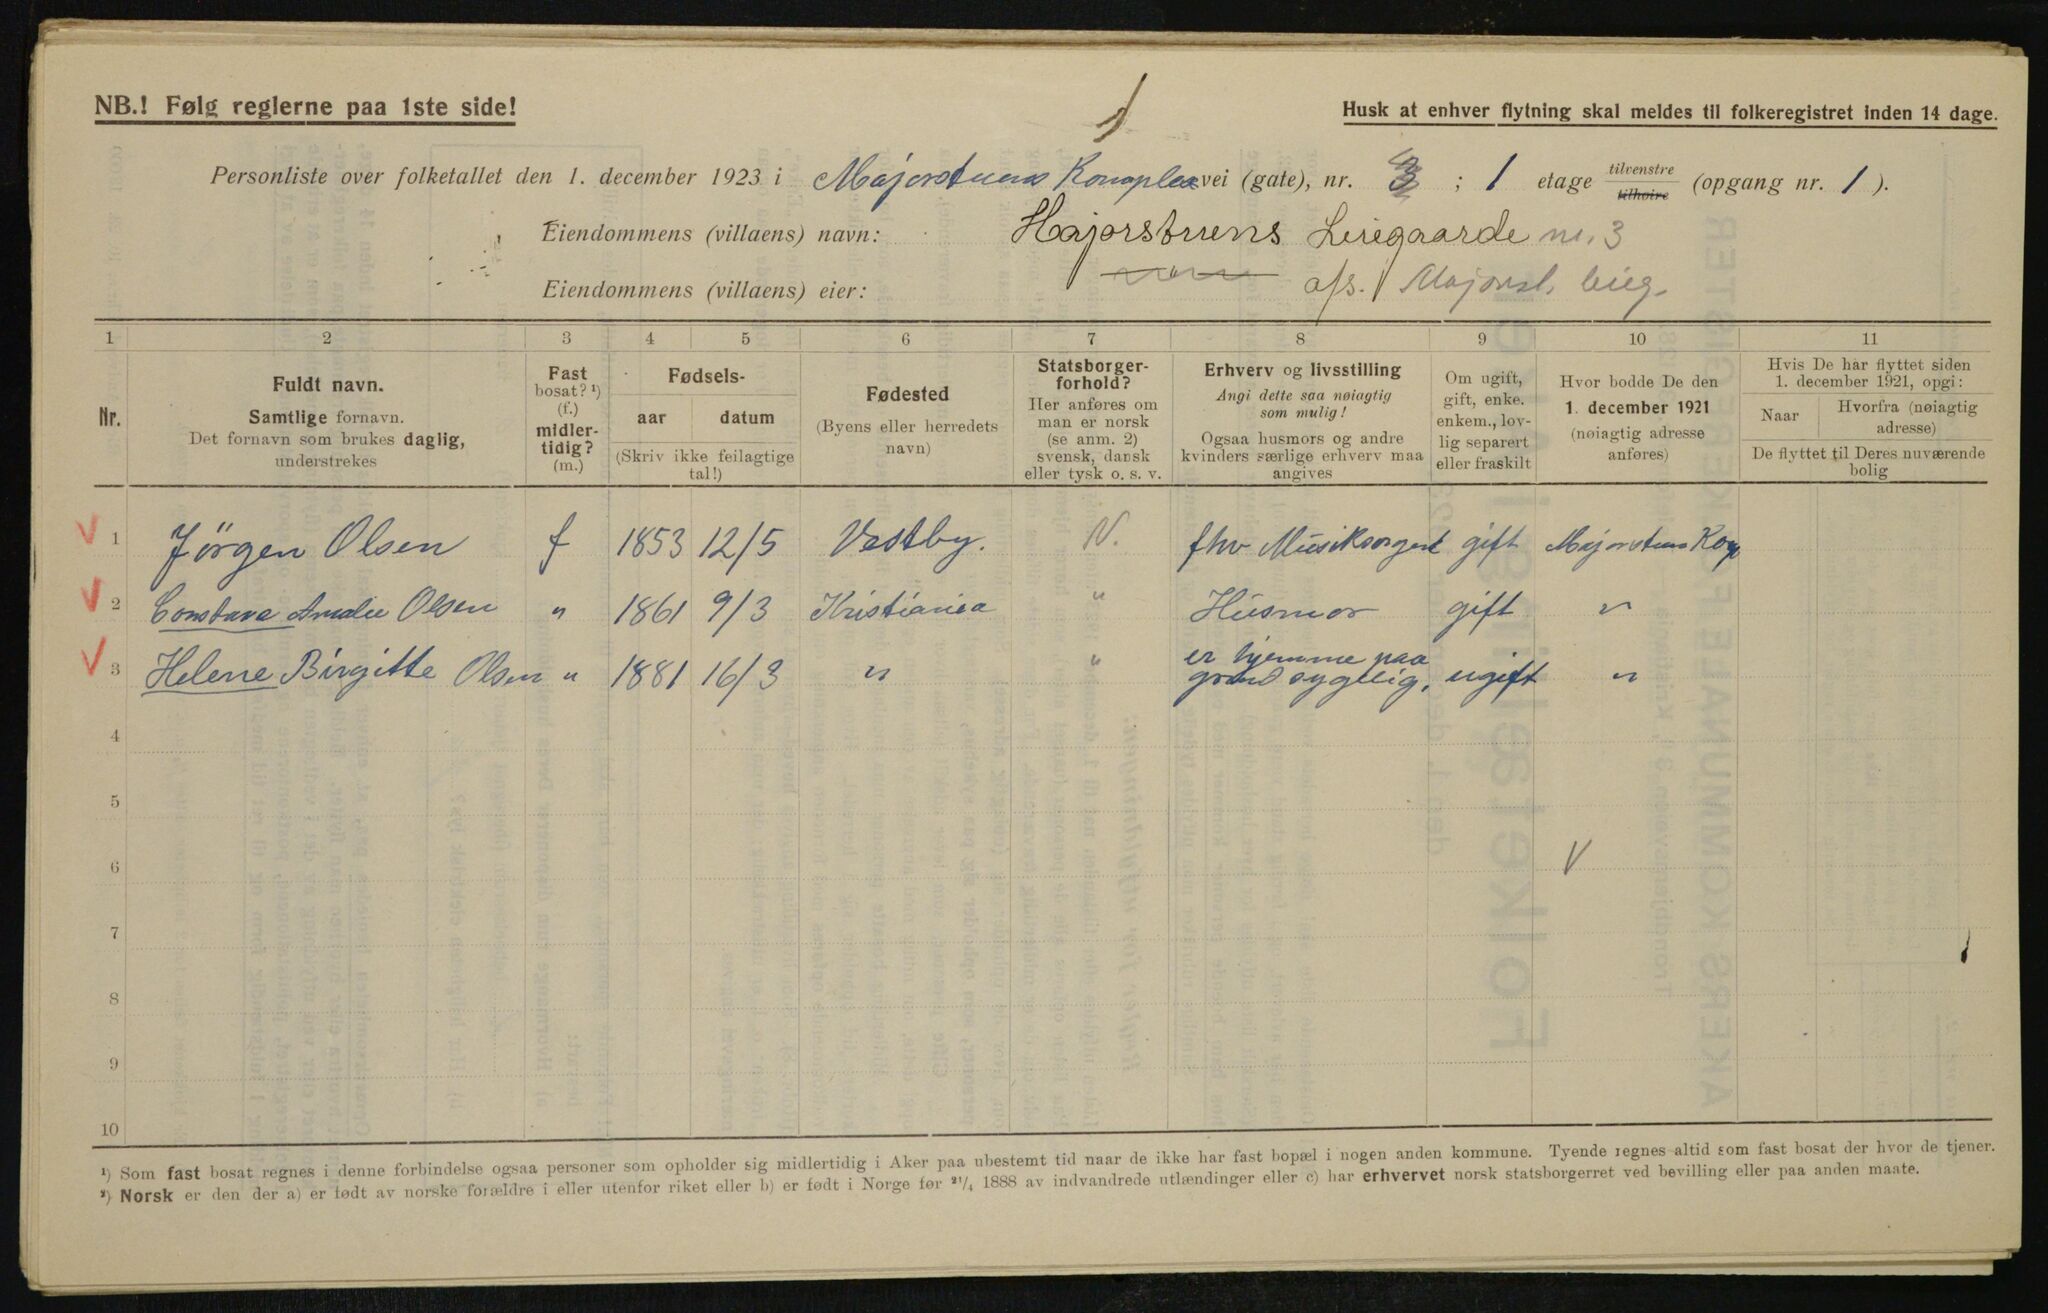 NB.! Følg reglerne paa 1ste side!
Husk at enhver flytning skal meldes til folkeregistret inden 14 dage.
Personliste over folketallet den 1. december 1923 i Majorstuens Komplex vei (gate), nr. 3 ; 1 etage tilvenstre tilhøire (opgang nr. 1 ).
Eiendommens (villaens) navn: Majorstuens Leiegaarde nr. 3
Eiendommens (villaens) eier: a/s. Majorst. leieg.
1 2 3 4 5 6 7 8 9 10 11
Nr.
Fuldt navn.
Samtlige fornavn.
Det fornavn som brukes daglig,
understrekes
Fast
bosat? ¹)
(f.)
midler-
tidig?
(m.)
Fødsels-
aar datum
(Skriv ikke feilagtige
tal!)
Fødested
(Byens eller herredets
navn)
Statsborger-
forhold?
Her anføres om
man er norsk
(se anm. 2)
svensk, dansk
eller tysk o. s. v.
Erhverv og livsstilling
Angi dette saa nøiagtig
som mulig!
Ogsaa husmors og andre
kvinders særlige erhverv maa
angives
Om ugift,
gift, enke.
enkem., lov-
lig separert
eller fraskilt
Hvor bodde De den
1. december 1921
(nøiagtig adresse
anføres)
Hvis De har flyttet siden
1. december 1921, opgi:
Naar Hvorfra (nøiagtig
adresse)
De flyttet til Deres nuværende
bolig
1 Jørgen Olsen f 1853 12/5 Vestby. N. fhv Musiksergent gift Majorstuens Komp
2 Constance Amalie Olsen " 1861 9/3 Kristiania " Husmor gift "
3 Helene Birgitte Olsen " 1881 16/3 " " er hjemme paa
grund sygelig, ugift "
4
5
6
7
8
9
10
¹) Som fast bosat regnes i denne forbindelse ogsaa personer som opholder sig midlertidig i Aker paa ubestemt tid naar de ikke har fast bopæl i nogen anden kommune. Tyende regnes altid som fast bosat der hvor de tjener.
²) Norsk er den der a) er født av norske forældre i eller utenfor riket eller b) er født i Norge før ²¹/₄ 1888 av indvandrede utlændinger eller c) har erhvervet norsk statsborgerret ved bevilling eller paa anden maate.